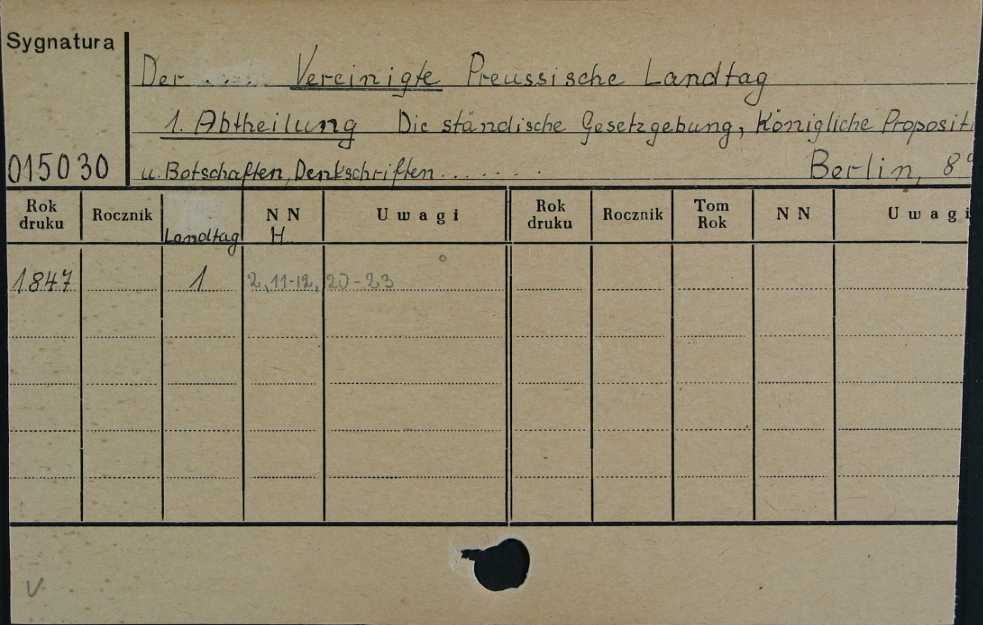 Sygnatura
Der ..... Vereinigte Preussische Landtag
1. Abtheilung Die ständische Gesetzgebung, Königliche Propositi
015030
u. Botschaften, Denkschriften ........ Berlin, 8°
Rok druku Rocznik Landtag NN H. Uwagi Rok druku Rocznik Tom Rok NN Uwagi
1847 1 2, 11-12, 20-23
V